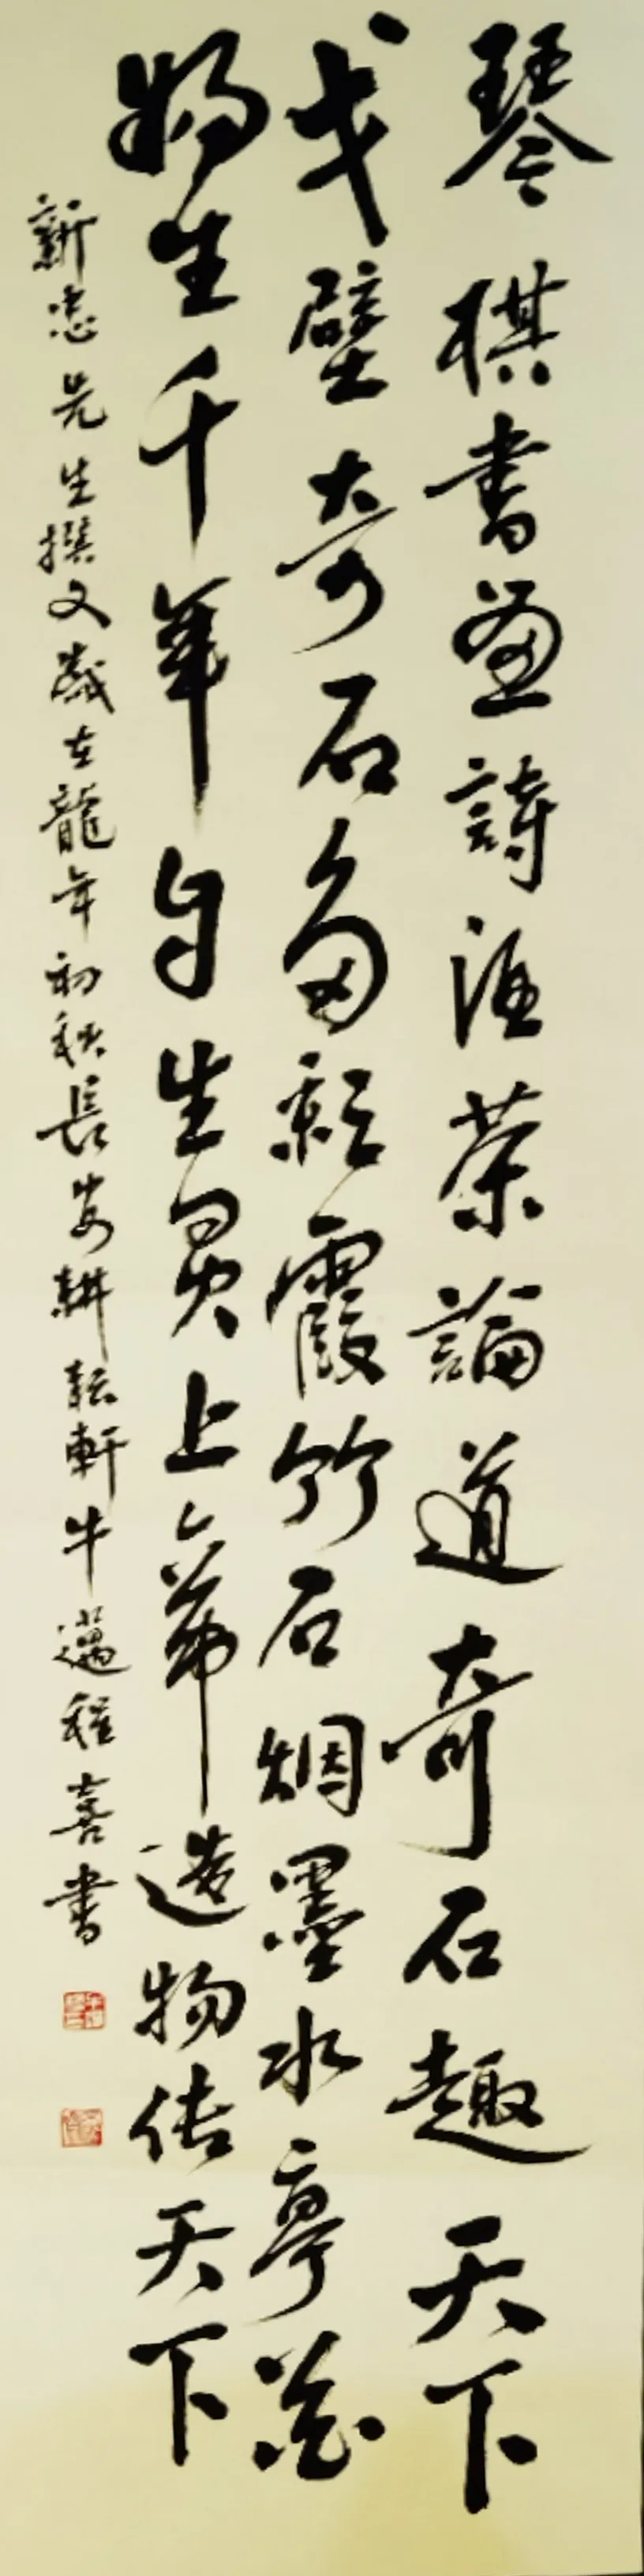 琴棋書画詩酒茶論道奇石趣天下
戈壁奇石多彩霞竹石烟墨水亭花
物生千年自生灵上帝造物传天下
新忠先生撰文歲在龍年初秋長安耕耘軒牛邁程喜書